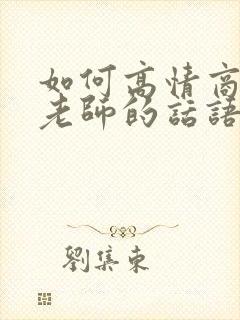 如何高情商
老師的話語
劉集東